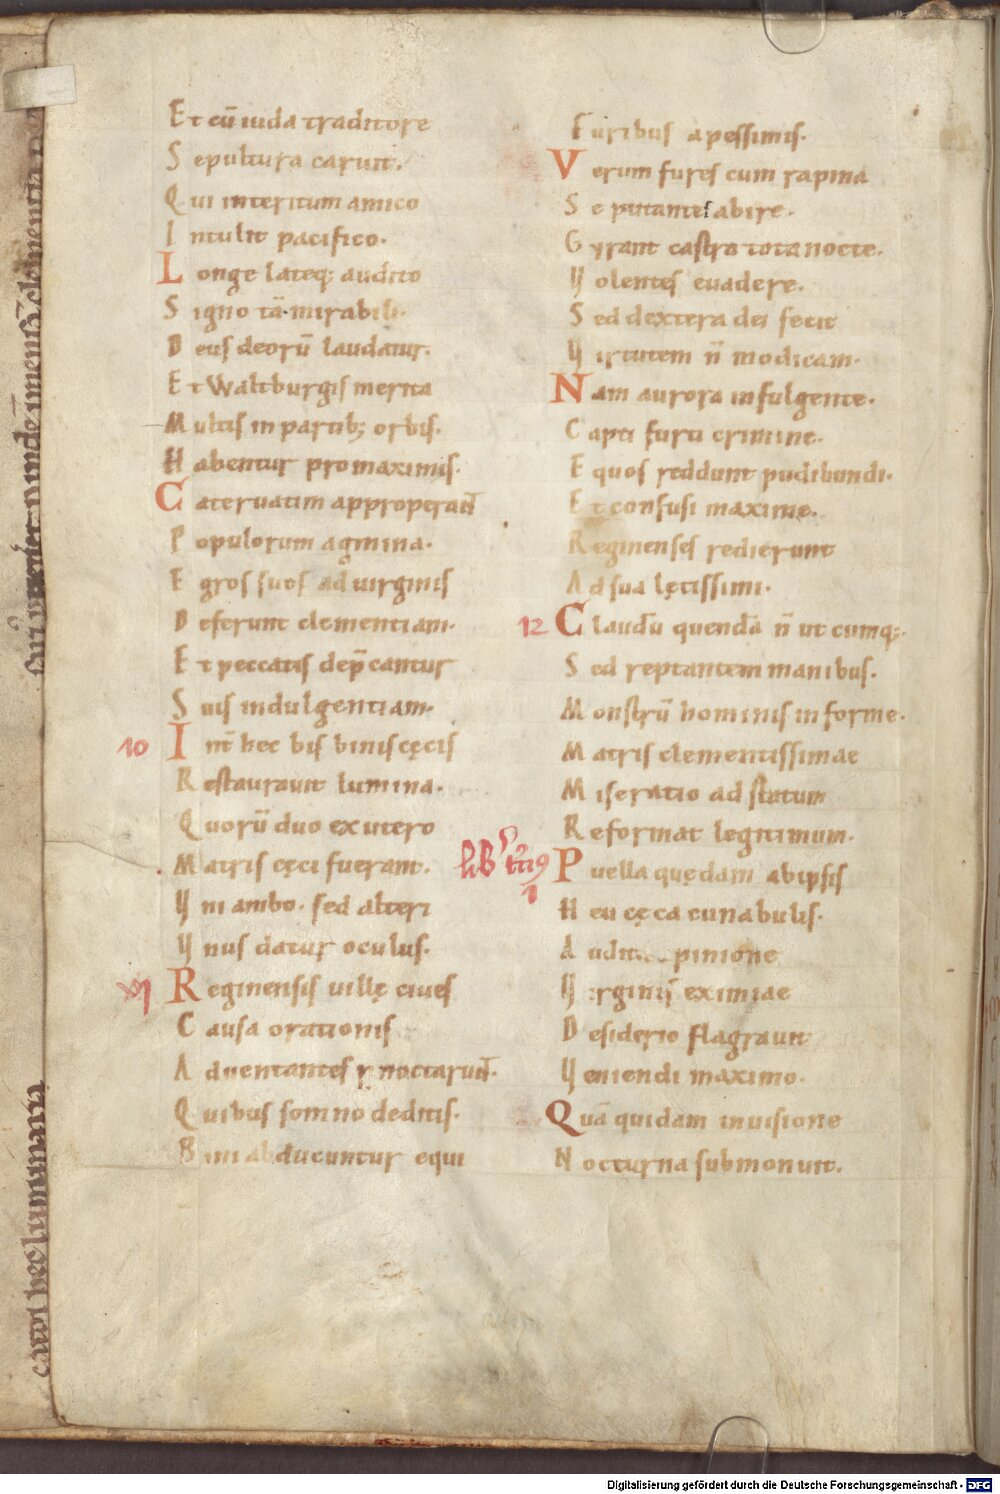 Et cū iuda traditore
Sepultura caruit.
Qui interitum amico
Intulit pacifico.
Longe lateq; audito
Signo tā mirabili.
Deus deorū laudatur.
Et Waltburgis merita
Multis in partib; orbis.
Habentur pro maximis.
Cateruatim approperant
Populorum agmina.
Egros suos ad uirginis
Deferunt clementiam.
Et peccatis dep̄cantur
Suis indulgentiam.
10 Int̄ hec bis binis cęcis
Restaurauit lumina.
Quorū duo ex utero
Matris cęci fuerant.
Uni ambo. sed alteri
Unus datur oculus.
Reginensis uillę ciues
Causa orationis
Aduentantes noctarunt.
Quibus somno deditis.
Bini abducuntur equi
Furibus a pessimis.
Verum fures cum rapina
Se putantes abire.
Gyrant castra tota nocte.
Uolentes euadere.
Sed dextera dei fecit
Uirtutem n̄ modicam.
Nam aurora infulgente.
Capti furti crimine.
Equos reddunt pudibundi.
Et confusi maxime.
Reginenses redierunt
Ad sua lętissimi.
12 Claudū quendā n̄ ut cumq;.
Sed reptantem manibus.
Monstrū hominis informe.
Matris clementissimae
Miseratio ad statum
Reformat legitimum.
Puella quędam ab ipsis
Heu cęca cunabulis.
Audita opinione
Uirginis eximiae
Desiderio flagrauit
Ueniendi maximo.
Quā quidam in uisione
Nocturna submonuit.
Digitalisierung gefördert durch die Deutsche Forschungsgemeinschaft - DFG